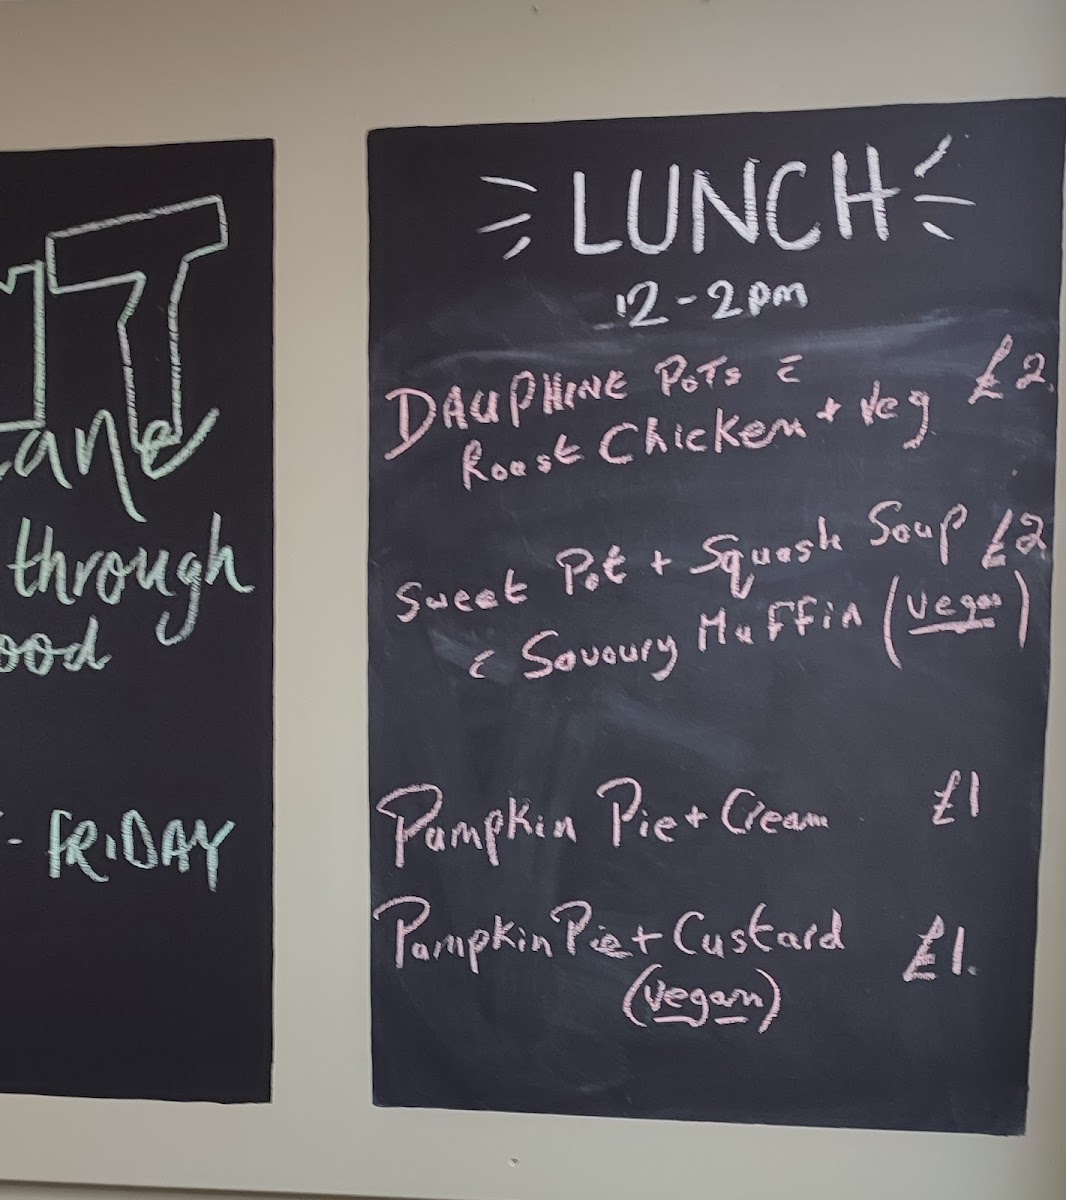 T
through
ood
- FRIDAY
LUNCH
12-2pm
DAUPHINE POTS c̄
Roast Chicken + Veg £2.
Sweet Pot + Squash Soup £2
c̄ Savoury Muffin (vegan)
Pumpkin Pie + Cream £1
Pumpkin Pie + Custard £1.
(vegan)